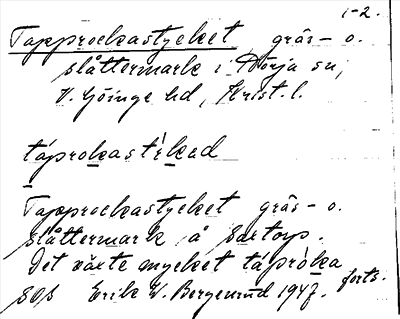 1-2.
Tapprockastycket gräs- o.
slåttermark i Rörja sn,
V. Göinge hd, Krist. l.
tåprokastikad
Tapprockastycket gräs- o.
slåttermark å Sartorp.
Det växte mycket tåpròka
forts.
SOS Erik W. Bergenrud 1947.